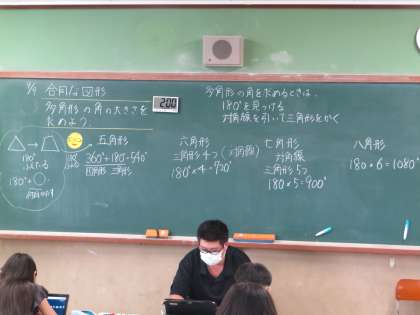 合同な図形
多角形の角の大きさを
求めよう。
2:00
多角形の角を求めるときは、
180°を見つける
対角線を引いて三角形をかく
180°
180°+
五角形
360°+180°=540°
四角形 三角形
六角形
三角形4つ(対角線)
180°×4=720°
七角形
対角線
三角形5つ
180°×5=900°
八角形
180×6=1080°